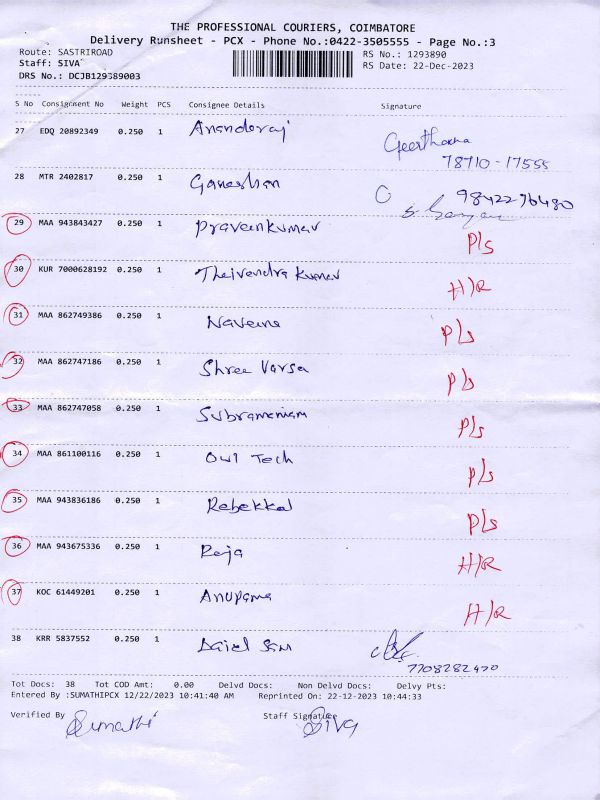 THE PROFESSIONAL COURIERS, COIMBATORE
Delivery Runsheet - PCX - Phone No.:0422-3505555 - Page No.:3
Route: SASTRIROAD RS No.: 1293890
Staff: SIVA RS Date: 22-Dec-2023
DRS No.: DCJB129389003
S No Consignment No Weight PCS Consignee Details Signature
27 EDQ 20892349 0.250 1 Ananderaj Geerthana
78710-17555
28 MTR 2402817 0.250 1 Ganeshan 9842296480
29 MAA 943843427 0.250 1 Praveenkumar P/s
30 KUR 7000628192 0.250 1 Theivendra Kumar H/R
31 MAA 862749386 0.250 1 Naveena P/s
32 MAA 862747186 0.250 1 Shree Varsa P/s
33 MAA 862747058 0.250 1 Subramaniam P/s
34 MAA 861100116 0.250 1 Owl Tech P/s
35 MAA 943836186 0.250 1 Rebekkal P/s
36 MAA 943675336 0.250 1 Raja H/R
37 KOC 61449201 0.250 1 Anupama H/R
38 KRR 5837552 0.250 1 Daiel Sam
7708282470
Tot Docs: 38 Tot COD Amt: 0.00 Delvd Docs: Non Delvd Docs: Delvy Pts:
Entered By :SUMATHIPCX 12/22/2023 10:41:40 AM Reprinted On: 22-12-2023 10:44:33
Verified By Sumathi Staff Signature Siva